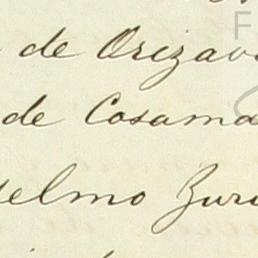 de Orizava
de Cosama
selmo Zur